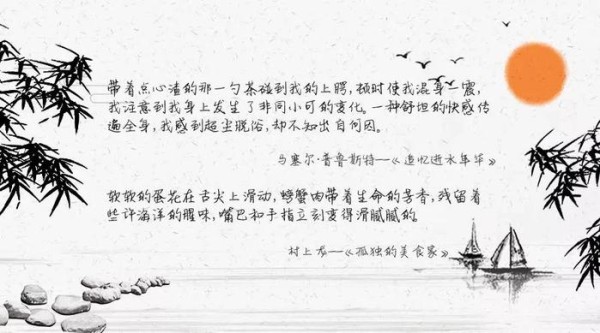 带着点心渣的那一勺茶碰到我的上腭,顿时使我混身一震,
我注意到我身上发生了非同小可的变化。一种舒坦的快感传
遍全身,我感到超尘脱俗,却不知出自何因。
马塞尔·普鲁斯特——《追忆逝水年华》
软软的蛋花在舌尖上滑动,螃蟹肉带着生命的芳香,残留着
些许海洋的腥味,嘴巴和手指立刻变得滑腻腻的。
村上龙——《孤独的美食家》